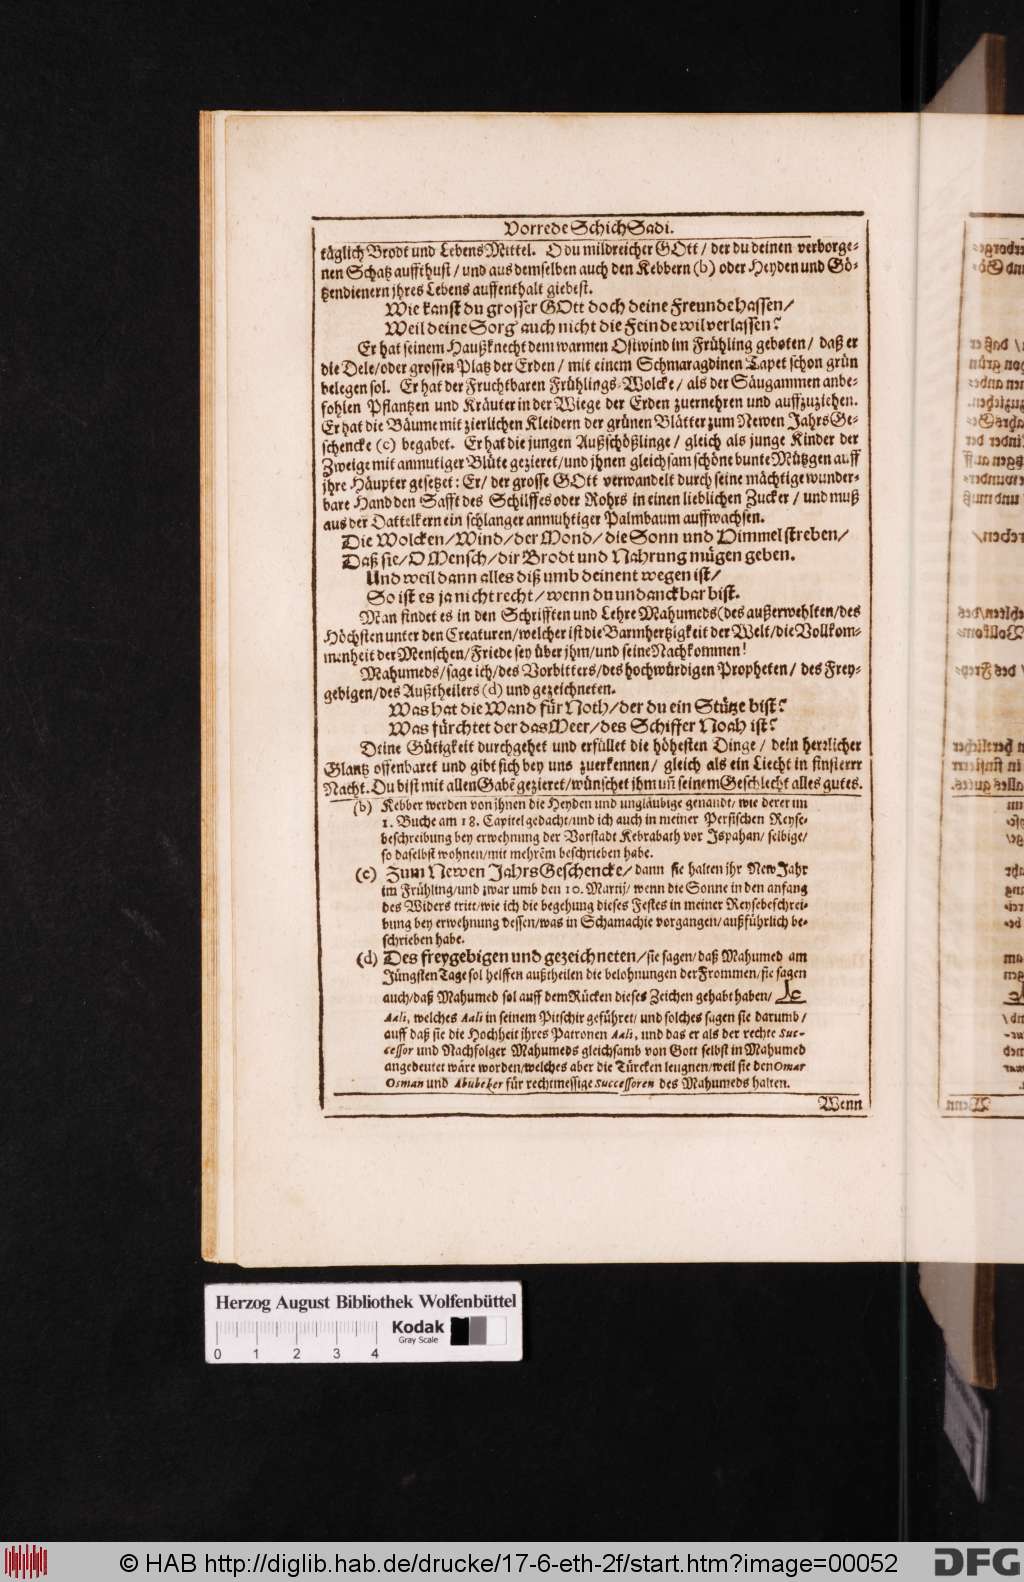 Vorrede Schich Sadi.
täglich Brodt und Lebens Mittel. O du mildreicher GOtt / der du deinen verborge-
nen Schatz auffthust / und aus demselben auch den Kebbern (b) oder Heyden und Gö-
tzendienern jhres Lebens auffenthalt giebest.
Wie kanst du grosser GOtt doch deine Freunde hassen /
Weil deine Sorg auch nicht die Feinde wil verlassen?
Er hat seinem Haußknecht dem warmen Ostwind im Frühling geboten / daß er
die Dele / oder grossen Platz der Erden / mit einem Schmaragdinen Tapet schon grün
belegen sol. Er hat der Fruchtbaren Frühlings-Wolcke / als der Säugammen anbe-
fohlen Pflantzen und Kräuter in der Wiege der Erden zuernehren und auffzuziehen.
Er hat die Bäume mit zierlichen Kleidern der grünen Blätter zum Newen Jahrs Ge-
schencke (c) begabet. Er hat die jungen Außschößlinge / gleich als junge Kinder der
Zweige mit anmutiger Blüte gezieret / und jhnen gleichsam schöne bunte Mützgen auff
jhre Häupter gesetzet: Er / der grosse GOtt verwandelt durch seine mächtige wunder-
bare Hand den Safft des Schilffes oder Rohrs in einen lieblichen Zucker / und muß
aus der Dattelkern ein schlanger anmuhtiger Palmbaum auffwachsen.
Die Wolcken / Wind / der Mond / die Sonn und Himmel streben /
Daß sie / O Mensch / dir Brodt und Nahrung mügen geben.
Und weil dann alles diß umb deinent wegen ist /
So ist es ja nicht recht / wenn du undanckbar bist.
Man findet es in den Schrifften und Lehre Mahumeds (des außerwehlten / des
Höchsten unter den Creaturen / welcher ist die Barmhertzigkeit der Welt / die Vollkom-
menheit der Menschen / Friede sey über jhm / und seine Nachkommen!
Mahumeds / sage ich / des Vorbitters / des hochwürdigen Propheten / des Frey-
gebigen / des Außtheilers (d) und gezeichneten.
Was hat die Wand für Noth / der du ein Stütze bist?
Was fürchtet der das Meer / des Schiffer Noah ist?
Deine Gütigkeit durchgehet und erfüllet die höhesten Dinge / dein herrlicher
Glantz offenbaret und gibt sich bey uns zuerkennen / gleich als ein Liecht in finsterer
Nacht. Du bist mit allen Gabē gezieret / wünschet jhm uñ seinem Geschlecht alles gutes.
(b) Kebber werden von jhnen die Heyden und ungläubige genandt / wie derer im
1. Buche am 18. Capitel gedacht / und ich auch in meiner Persischen Reyse-
beschreibung bey erwehnung der Vorstadt Kebrabath vor Ispahan / selbige /
so daselbst wohnen / mit mehrēm beschrieben habe.
(c) Zum Newen Jahrs Geschencke / dann sie halten jhr New Jahr
im Frühling / und zwar umb den 10. Martij / wenn die Sonne in den anfang
des Widers tritt / wie ich die begehung dieses Festes in meiner Reysebeschrei-
bung bey erwehnung dessen / was in Schamachie vorgangen / außführlich be-
schrieben habe.
(d) Des freygebigen und gezeichneten / sie sagen / daß Mahumed am
Jüngsten Tage sol helffen außtheilen die belohnungen der Frommen / sie sagen
auch / daß Mahumed sol auff dem Rücken dieses Zeichen gehabt haben /
Aali, welches Aali in seinem Pitschir geführet / und solches sagen sie darumb /
auff daß sie die Hochheit jhres Patronen Aali, und das er als der rechte Suc-
cessor und Nachfolger Mahumeds gleichsamb von Gott selbst in Mahumed
angedeutet wäre worden / welches aber die Türcken leugnen / weil sie den Omar
Osman und Abubeker für rechtmessige Successoren des Mahumeds halten.
Wenn
Herzog August Bibliothek Wolfenbüttel
Kodak
Gray Scale
0 1 2 3 4
© HAB http://diglib.hab.de/drucke/17-6-eth-2f/start.htm?image=00052
DFG